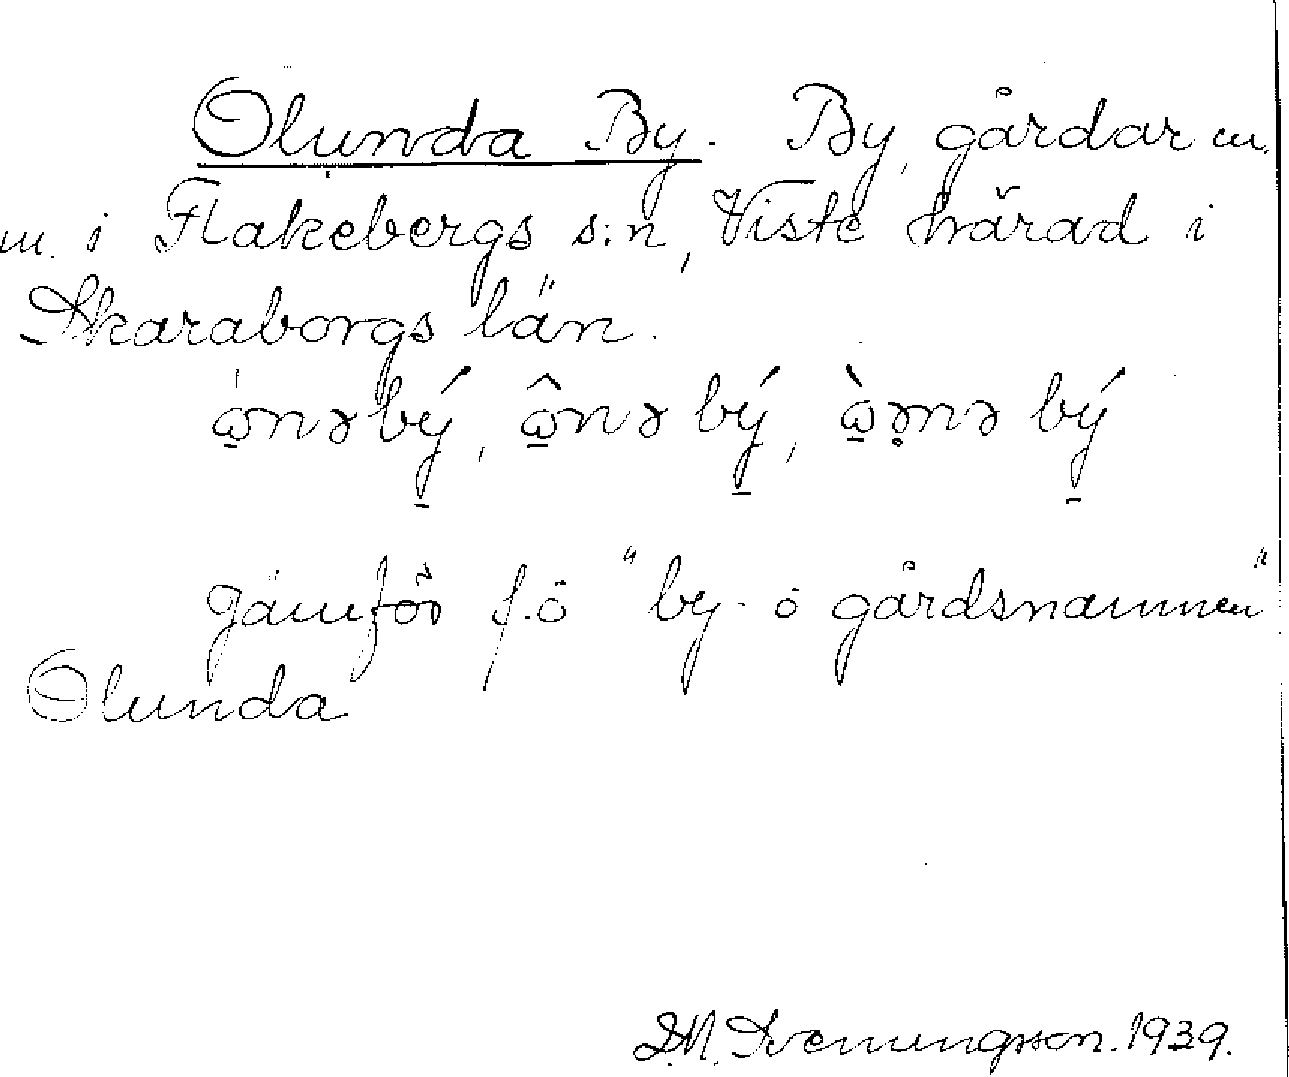 Olunda By. By, gårdar m.
m. i Flakebergs s:n, Viste härad i
Skaraborgs län.
bý, bý, bý
jämför f.ö "by- o gårdsnamnen"
Olunda
1939.